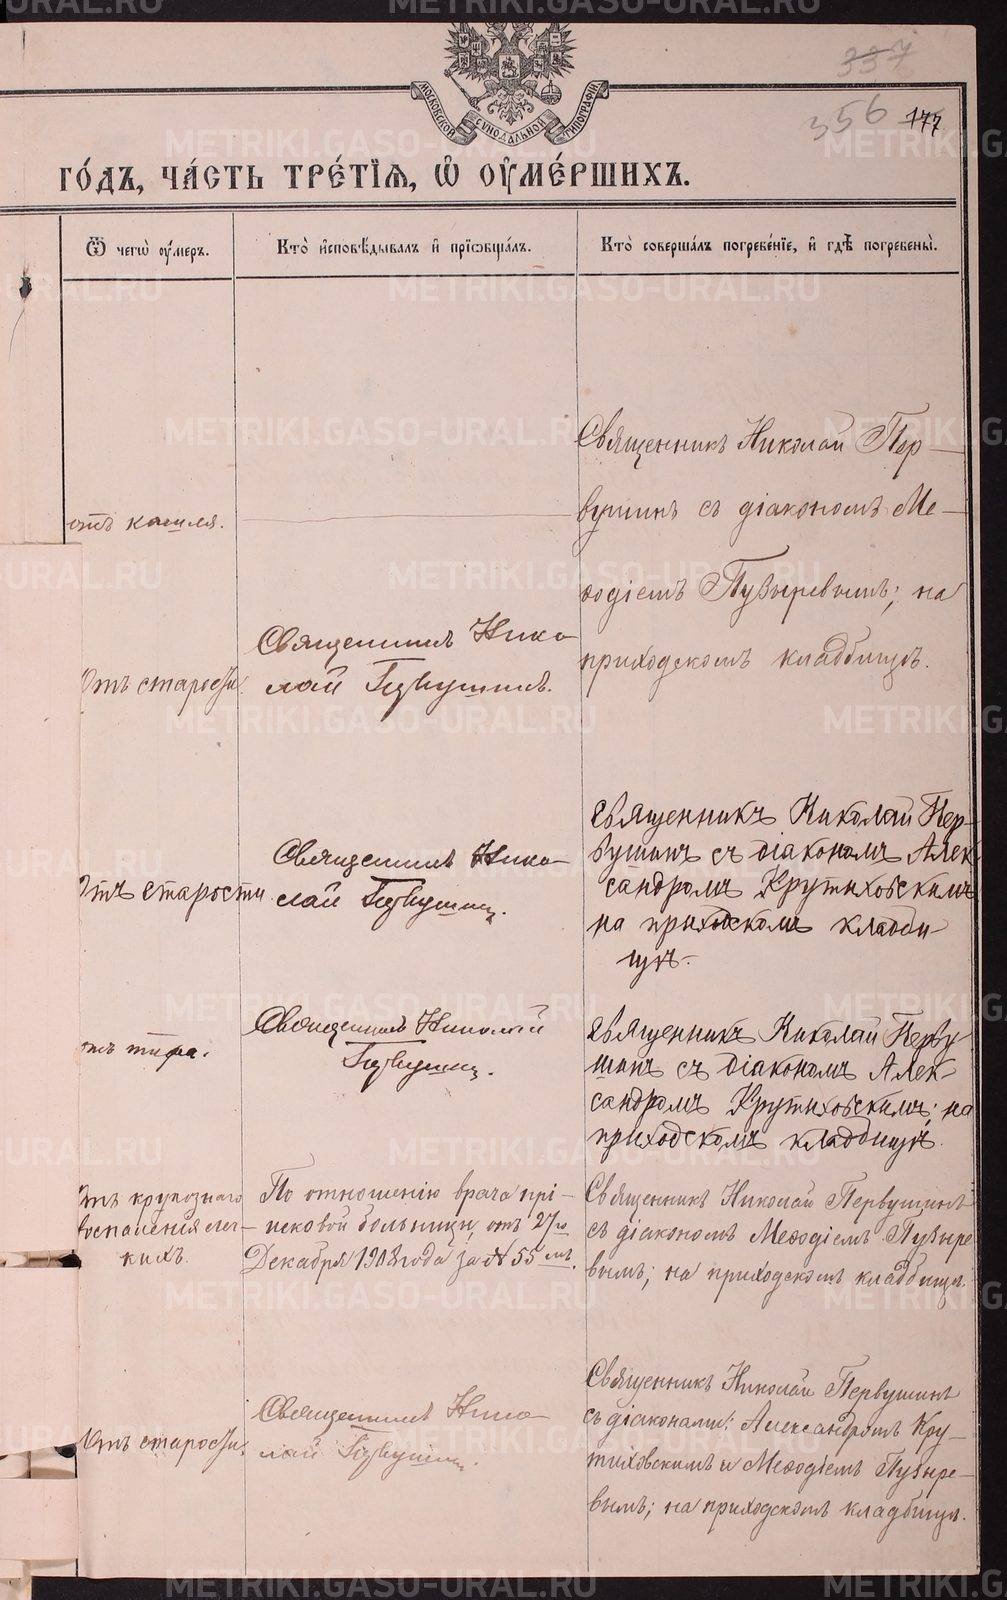 337
356 177
МОСКОВСКОЙ СѴНОДАЛЬНОЙ ТИПОГРАФІИ
ГО́ДЪ, ЧА́СТЬ ТРЕ́ТІѦ, Ѡ҆ ОУ҆МЕ́РШИХЪ.
Ѿ чегѡ̀ оу҆́меръ.
Кто̀ и҆сповѣ́дывалъ и҆ прїѡбща́лъ.
Кто̀ соверша́лъ погребе́нїе, и҆ гдѣ̀ погребены̀.
отъ кашля.
Священникъ Николай Пер-
вушинъ съ діакономъ Ме-
ѳодіемъ Пузыревымъ; на
приходскомъ кладбищѣ.
Отъ старости.
Священникъ Нико-
лай Первушинъ.
Отъ старости
Священникъ Нико-
лай Первушинъ.
Священникъ Николай Пер-
вушинъ съ діакономъ Алек-
сандромъ Крутиховскимъ
на приходскомъ кладби-
щѣ.-
отъ тифа.
Священникъ Николай
Первушинъ.
Священникъ Николай Перву-
шинъ съ діакономъ Алек-
сандромъ Крутиховскимъ; на
приходскомъ кладбищѣ.
Отъ крупознаго
воспаленія лег-
кихъ.
По отношенію врача прі-
исковой больницы, отъ 27го
Декабря 1908 года за № 55мъ.
Священникъ Николай Первушинъ
съ діакономъ Меѳодіемъ Пузыре-
вымъ; на приходскомъ кладбищѣ.
Отъ старости.
Священникъ Нико-
лай Первушинъ.
Священникъ Николай Первушинъ
съ діаконами: Александромъ Кру-
тиховскимъ и Меѳодіемъ Пузыре-
вымъ; на приходскомъ кладбищѣ.
METRIKI.GASO-URAL.RU